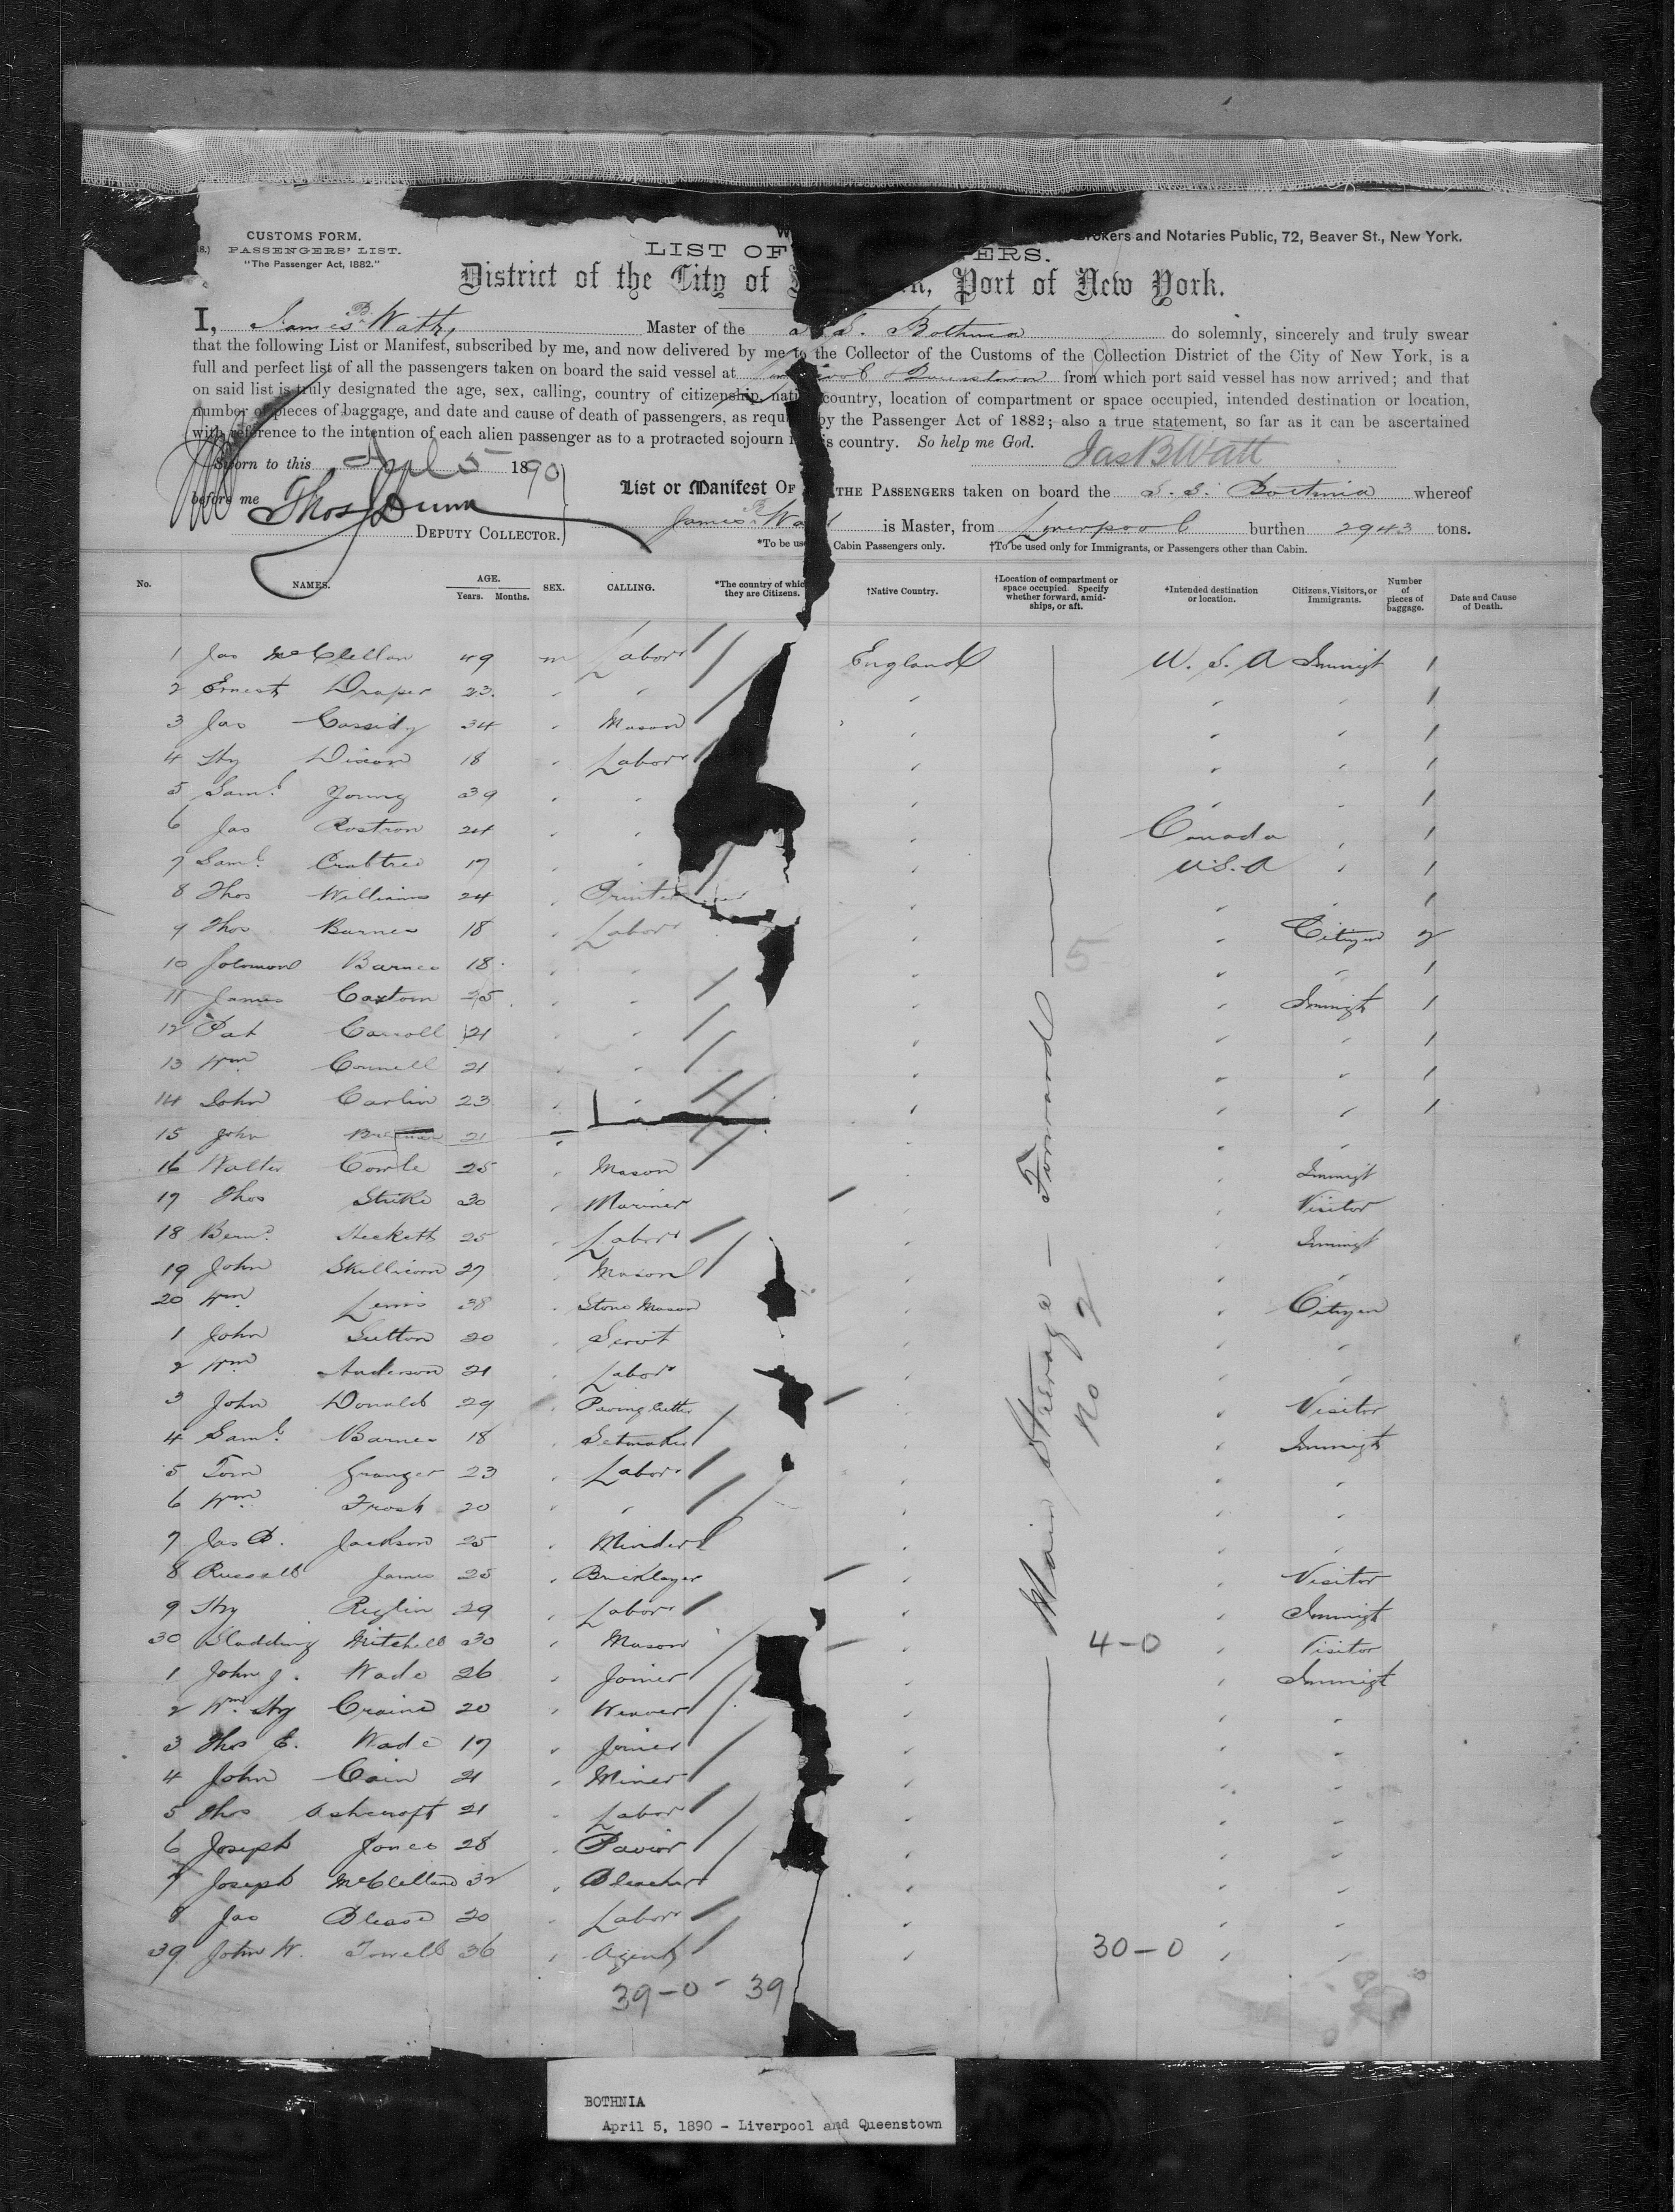 CUSTOMS FORM.
PASSENGERS' LIST.
"The Passenger Act, 1882."
okers and Notaries Public, 72, Beaver St., New York.
LIST OF ERS.
District of the City of rk, Port of New York.
I, James B. Watt, Master of the S.S. Bothnia do solemnly, sincerely and truly swear
that the following List or Manifest, subscribed by me, and now delivered by me to the Collector of the Customs of the Collection District of the City of New York, is a
full and perfect list of all the passengers taken on board the said vessel at Liverpool & Queenstown from which port said vessel has now arrived; and that
on said list is truly designated the age, sex, calling, country of citizenship, nati country, location of compartment or space occupied, intended destination or location,
number of pieces of baggage, and date and cause of death of passengers, as requ by the Passenger Act of 1882; also a true statement, so far as it can be ascertained
with reference to the intention of each alien passenger as to a protracted sojourn i is country. So help me God.
Sworn to this Apl 5 1890 Jas B Watt
before me Thos J Dunn
DEPUTY COLLECTOR.
List or Manifest OF THE PASSENGERS taken on board the S.S. Bothnia whereof
James B. Watt is Master, from Liverpool burthen 2943 tons.
*To be use Cabin Passengers only. †To be used only for Immigrants, or Passengers other than Cabin.
No. NAMES. AGE. Years. Months. SEX. CALLING. *The country of whic they are Citizens. †Native Country. †Location of compartment or space occupied. Specify whether forward, amidships, or aft. †Intended destination or location. Citizens, Visitors, or Immigrants. Number of pieces of baggage. Date and Cause of Death.
1 Jas McClellan 49 m Labor England U.S.A Immigt 1
2 Ernest Draper 23 " " " " " 1
3 Jas Cassidy 34 " Mason " " " 1
4 Hy Dixon 18 " Labor " " " 1
5 Saml Young 39 " " " " " 1
6 Jas Rostron 24 " " " Canada " 1
7 Saml Crabtree 17 " " " U.S.A " 1
8 Thos Williams 24 " Printer " " " 1
9 Thos Barnes 18 " Labor " " Citizen 2
10 Solomon Barnes 18 " " " " " 1
11 James Caxtom 25 " " " " Immigt 1
12 Pat Carroll 21 " " " " " 1
13 Wm Connell 21 " " " " " 1
14 John Carlin 23 " " " " " 1
15 John 21 " " " "
16 Walter Cowle 25 " Mason " " Immigt
17 Thos Strike 30 " Mariner " " Visitor
18 Bernd Heckett 25 " Labor " " Immigt
19 John Skillicorn 27 " Mason " " "
20 Wm Lewis 38 " Stone Mason " " Citizen
1 John Sutton 20 " Servt " " "
2 Wm Anderson 21 " Labor " " "
3 John Donald 29 " Paving Cutter " " Visitor
4 Saml Barnes 18 " Setmaker " " Immigt
5 Tom Granger 23 " Labor " " "
6 Wm Frost 20 " " " " "
7 Jas D. Jackson 25 " Minder " " "
8 Russell James 25 " Bricklayer " " Visitor
9 Hy Reglin 29 " Labor " " Immigt
30 Gladding Mitchell 30 " Mason " 4-0 " Visitor
1 John J. Wade 26 " Joiner " " Immigt
2 Wm Hy Craine 20 " Weaver " " "
3 Thos E. Wade 17 " Joiner " " "
4 John Cain 21 " Miner " " "
5 Thos Ashcroft 21 " Labor " " "
6 Joseph Jones 28 " Pavior " " "
7 Joseph McClelland 32 " Bleacher " " "
8 Jas Blease 20 " Labor " " "
39 John W. Towell 36 " Agent " 30-0 " "
Main Steerage - Forward
No 2
5
39-0-39
BOTHNIA
April 5, 1890 - Liverpool and Queenstown